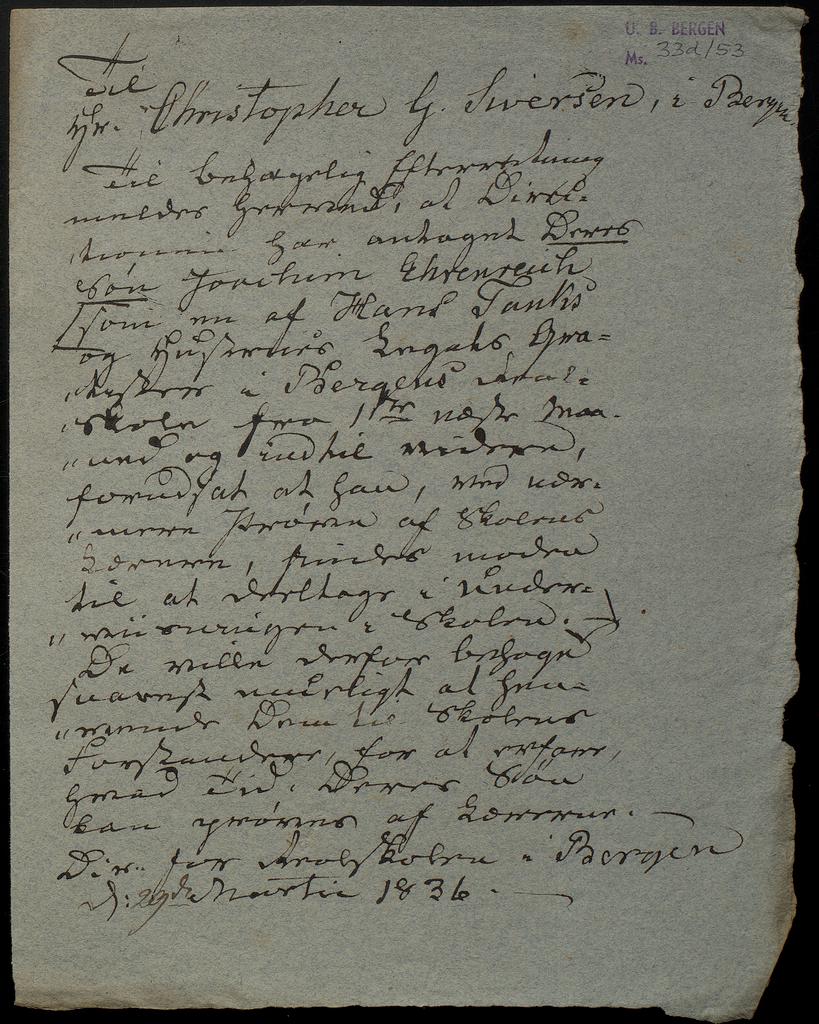 U. B. BERGEN
Ms. 33d/53
Til
Hr. Christopher G. Siversen, i Bergen.
Til behagelig Efterretning
meldes herved, at Direc-
tionen har antaget Deres
Søn Joachim Ehrenreich
som en af Hans Tanks
og Hustrues Legats Gra=
"tister i Bergens Real=
"Skole fra 1ste næste Maa-
"ned og indtil videre,
forudsat at han, ved nær-
"mere Prøven af Skolens
Lærere, findes moden
til at deeltage i Under=
"viisningen i Skolen. —
De ville derfor behage
snarest mueligt at hen-
"vende Dem til Skolens
Forstandere, for at erfare,
hvad Tid Deres Søn
kan prøves af Lærerne. —
Dir. for Realskolen i Bergen
d: 29de Martii 1836. —